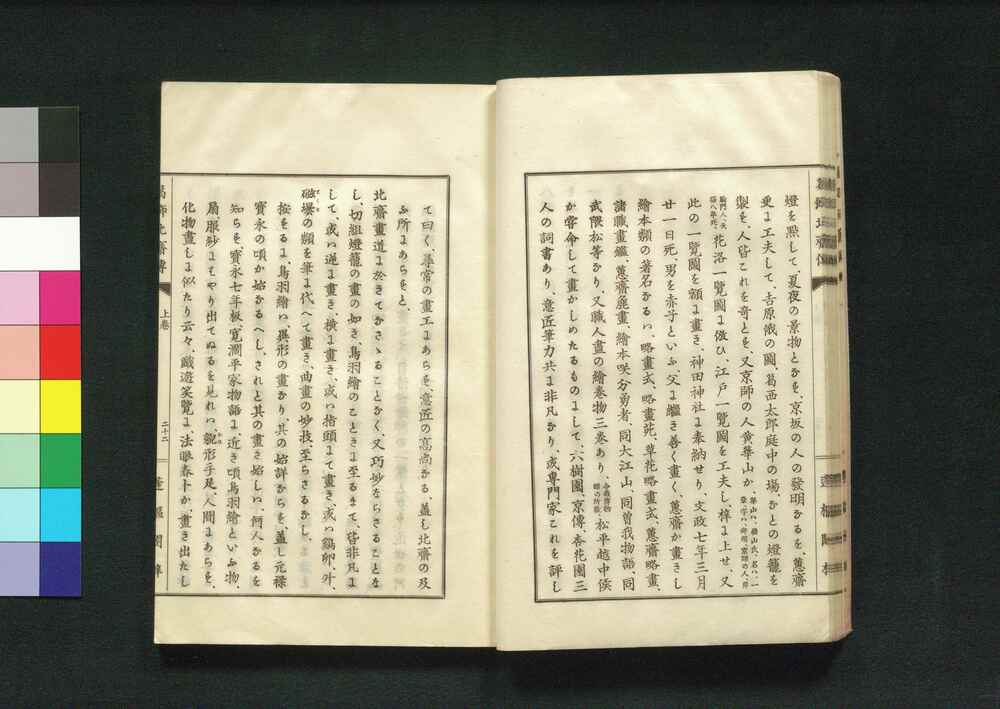 燈を點して、夏夜の景物とかを、京坂の人の發明かるを、蕙齋
更に工夫して、吉原俄の圖、葛西太郎庭中の場、かとの燈籠を
製を、人皆これを奇とを、又京師の人黄華山か
花洛一覽圖に倣ひ、江戸一覽圖を工夫し、梓に上せ、又
此の一覽圖を額に畫き、神田神社に奉納せり、文政七年三月
廿一日死、男を赤子といふ、父に繼き善く畫く、蕙齋か畫きし
繪本類の著名かるハ、略畫式、略畫苑、草花略畫式、蕙齋略畫、
諸職畫鑑、蕙齋麁畫、繪本咲分勇者、同大江山、同曽我物語、同
武隈松等かり、又職人畫の繪卷物三卷あり、松平越中侯
か寄命して畫かしめたるものにして、六樹園、京傳、杏花園三
人の詞書あり、意匠筆力共に非凡かり、或專門家これを評し
て曰く、尋常の畫工にあらを、意匠の高尚かる、蓋し北齋の及
ふ所にあらをと、
北齋畫道に於きてかさゝることかく、又巧妙ならさることな
し、切組燈籠の畫の如き、鳥羽繪のこときに至るまて、皆非凡に
して、或ハ逆に畫き、横に畫き、或ハ指頭にて畫き、或ハ鷄卵、升、
磁壜の類を筆に代へて畫き、曲畫の妙技、至らさるかし、
按をるに、鳥羽繪ハ異形の畫かり、其の始詳からを、蓋し元祿
寳永の頃か始かるへし、されと其の畫き始しハ、何人かるを
知らを、寳永七年板、寛濶平家物語に近き頃鳥羽繪といふ物、
扇、服紗にもやり出てぬるを見れハ、貌形手足、人間にあらを、
化物畫しに似たり云々、戯遊笑覽に、法眼春卜か、畫き出たし
上卷
二十二